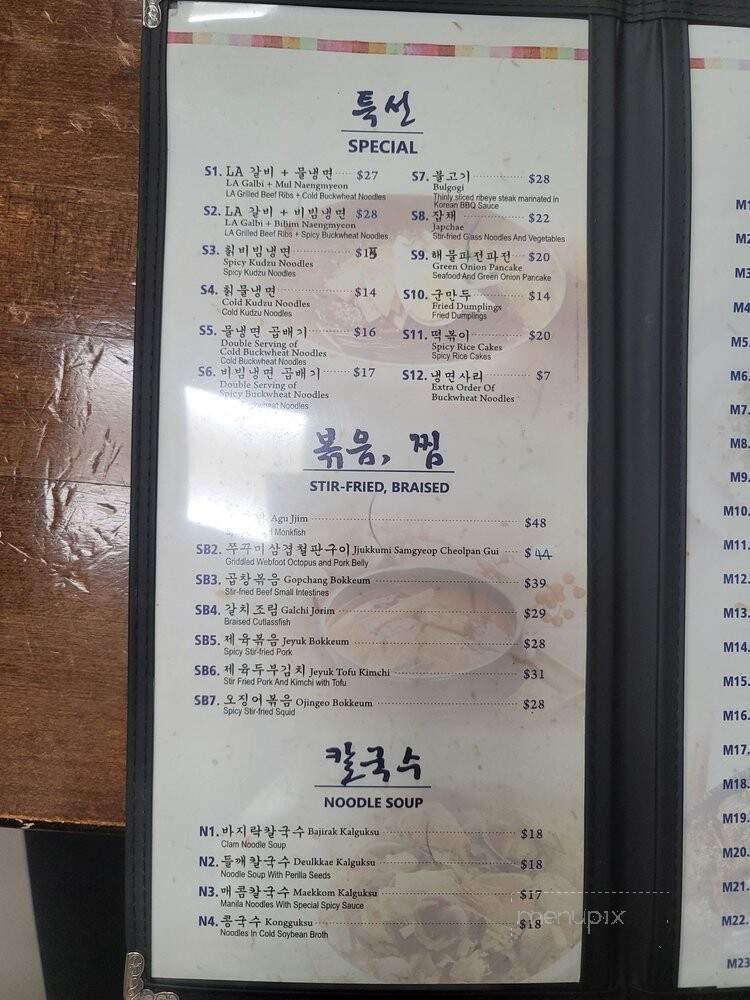 특선
SPECIAL
S1. LA 갈비 + 물냉면 $27
LA Galbi + Mul Naengmyeon
LA Grilled Beef Ribs + Cold Buckwheat Noodles
S2. LA 갈비 + 비빔냉면 $28
LA Galbi + Bibim Naengmyeon
LA Grilled Beef Ribs + Spicy Buckwheat Noodles
S3. 칡비빔냉면 $15
Spicy Kudzu Noodles
Spicy Kudzu Noodles
S4. 칡물냉면 $14
Cold Kudzu Noodles
Cold Kudzu Noodles
S5. 물냉면 곱배기 $16
Double Serving of
Cold Buckwheat Noodles
Cold Buckwheat Noodles
S6. 비빔냉면 곱배기 $17
Double Serving of
Spicy Buckwheat Noodles
Buckwheat Noodles
S7. 불고기 $28
Bulgogi
Thinly sliced ribeye steak marinated in
Korean BBQ Sauce
S8. 잡채 $22
Japchae
Stir-fried Glass Noodles And Vegetables
S9. 해물파전파전 $20
Green Onion Pancake
Seafood And Green Onion Pancake
S10. 군만두 $14
Fried Dumplings
Fried Dumplings
S11. 떡볶이 $20
Spicy Rice Cakes
Spicy Rice Cakes
S12. 냉면사리 $7
Extra Order Of
Buckwheat Noodles
볶음, 찜
STIR-FRIED, BRAISED
Agu Jjim $48
Monkfish
SB2. 쭈꾸미삼겹철판구이 Jjukkumi Samgyeop Cheolpan Gui $44
Griddled Webfoot Octopus and Pork Belly
SB3. 곱창볶음 Gopchang Bokkeum $39
Stir-fried Beef Small Intestines
SB4. 갈치조림 Galchi Jorim $29
Braised Cutlassfish
SB5. 제육볶음 Jeyuk Bokkeum $28
Spicy Stir-fried Pork
SB6. 제육두부김치 Jeyuk Tofu Kimchi $31
Stir Fried Pork And Kimchi with Tofu
SB7. 오징어볶음 Ojingeo Bokkeum $28
Spicy Stir-fried Squid
칼국수
NOODLE SOUP
N1. 바지락칼국수 Bajirak Kalguksu $18
Clam Noodle Soup
N2. 들깨칼국수 Deulkkae Kalguksu $18
Noodle Soup With Perilla Seeds
N3. 매콤칼국수 Maekkom Kalguksu $17
Manila Noodles With Special Spicy Sauce
N4. 콩국수 Kongguksu $18
Noodles In Cold Soybean Broth
menupix
M1
M2
M3
M4
M5.
M6.
M7.
M8.
M9.
M10.
M11.
M12.
M13.
M14.
M15.
M16.
M17.
M18.
M19.
M20.
M21.
M22.
M23